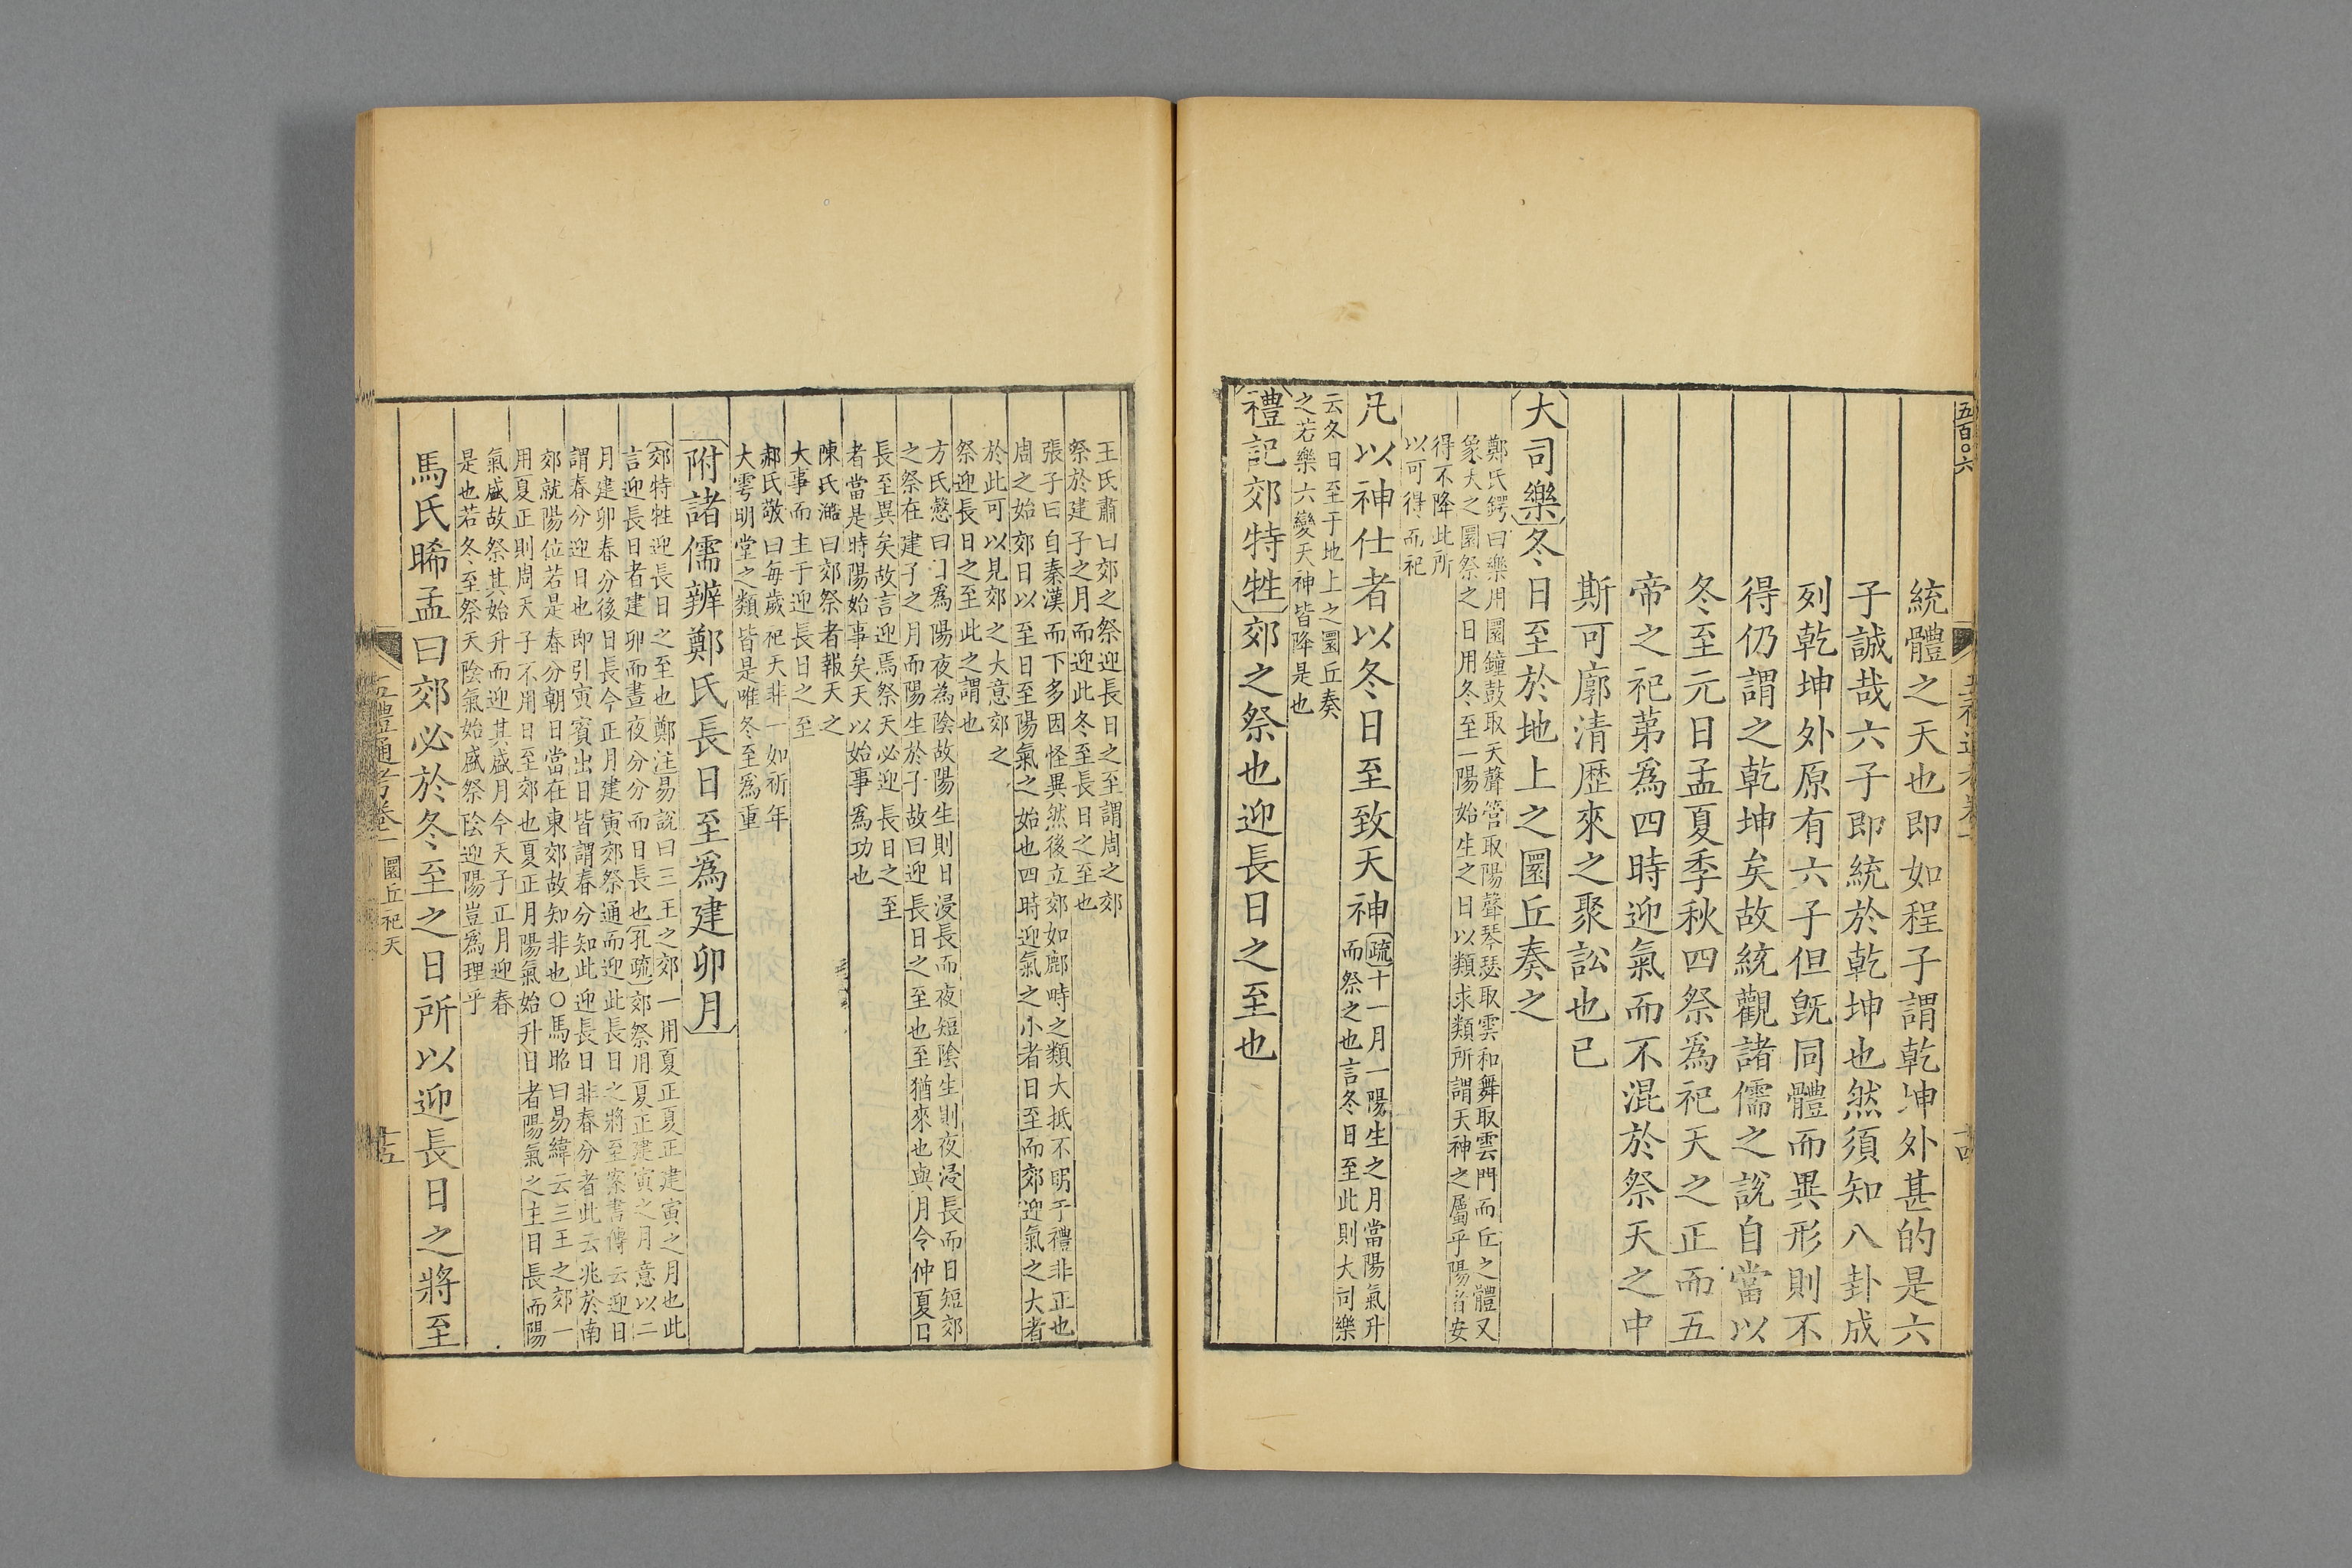 五百〇六
統體之天也即如程子謂乾坤外甚的是六
子誠哉六子即統於乾坤也然須知八卦成
列乾坤外原有六子但旣同體而異形則不
得仍謂之乾坤矣故統觀諸儒之說自當以
冬至元日孟夏季秋四祭爲祀天之正而五
帝之祀苐爲四時迎氣而不混於祭天之中
斯可廓清歷來之聚訟也已
大司樂冬日至於地上之圜丘奏之
鄭氏鍔曰樂用圜鐘鼓取天聲管取陽聲琴瑟取雲和舞取雲門而丘之體又
象天之圜祭之日用冬至一陽始生之日以類求類所謂天神之屬乎陽者安
得不降此所
以可得而祀
凡以神仕者以冬日至致天神
疏十一月一陽生之月當陽氣升
而祭之也言冬日至此則大司樂
云冬日至于地上之圜丘奏
之若樂六變天神皆降是也
禮記郊特牲郊之祭也迎長日之至也
王氏肅曰郊之祭迎長日之至謂周之郊
祭於建子之月而迎此冬至長日之至也
張子曰自秦漢而下多因怪異然後立郊如鄜畤之類大抵不明于禮非正也
周之始郊日以至日至陽氣之始也四時迎氣之小者日至而郊迎氣之大者
於此可以見郊之大意郊之
祭迎長日之至此之謂也
方氏慤曰日爲陽夜為陰故陽生則日浸長而夜短陰生則夜浸長而日短郊
之祭在建子之月而陽生於子故曰迎長日之至也至猶來也與月令仲夏日
長至異矣故言迎焉祭天必迎長日之至
者當是時陽始事矣天以始事為功也
陳氏澔曰郊祭者報天之
大事而主于迎長日之至
郝氏敬曰每歲祀天非一如祈年
大雩明堂之類皆是唯冬至爲重
附諸儒辨鄭氏長日至爲建卯月
郊特牲迎長日之至也鄭注易說曰三王之郊一用夏正夏正建寅之月也此
言迎長日者建卯而晝夜分分而日長也孔疏郊祭用夏正建寅之月意以二
月建卯春分後日長今正月建寅郊祭通而迎此長日之將至案書傳云迎日
謂春分迎日也即引寅賓出日皆謂春分知此迎長日非春分者此云兆於南
郊就陽位若是春分朝日當在東郊故知非也〇馬昭曰易緯云三王之郊一
用夏正則周天子不用日至郊也夏正月陽氣始升日者陽氣之主日長而陽
氣盛故祭其始升而迎其盛月令天子正月迎春
是也若冬至祭天陰氣始盛祭陰迎陽豈爲理乎
馬氏晞孟曰郊必於冬至之日所以迎長日之將至
五禮通考卷一 圜丘祀天